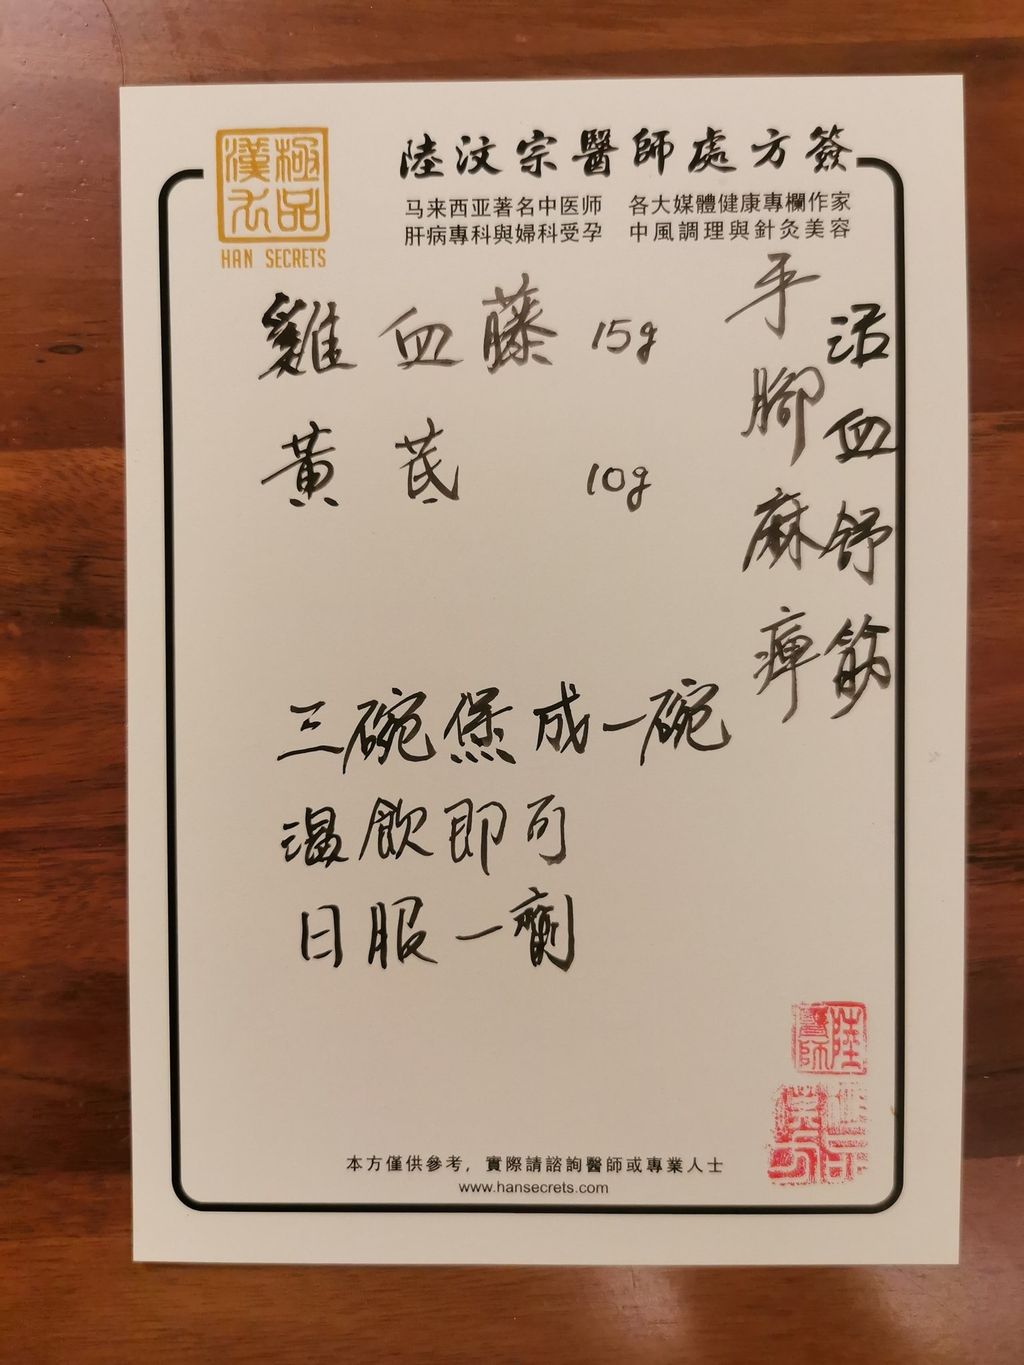 極品
漢方
HAN SECRETS
陸汶宗醫師處方簽
马来西亚著名中医师 各大媒體健康專欄作家
肝病專科與婦科受孕 中風調理與針灸美容
活血舒筋
手腳麻痺
雞血藤 15g
黃芪 10g
三碗煲成一碗
温飲即可
日服一劑
陸
醫師
本方僅供參考，實際請諮詢醫師或專業人士
www.hansecrets.com